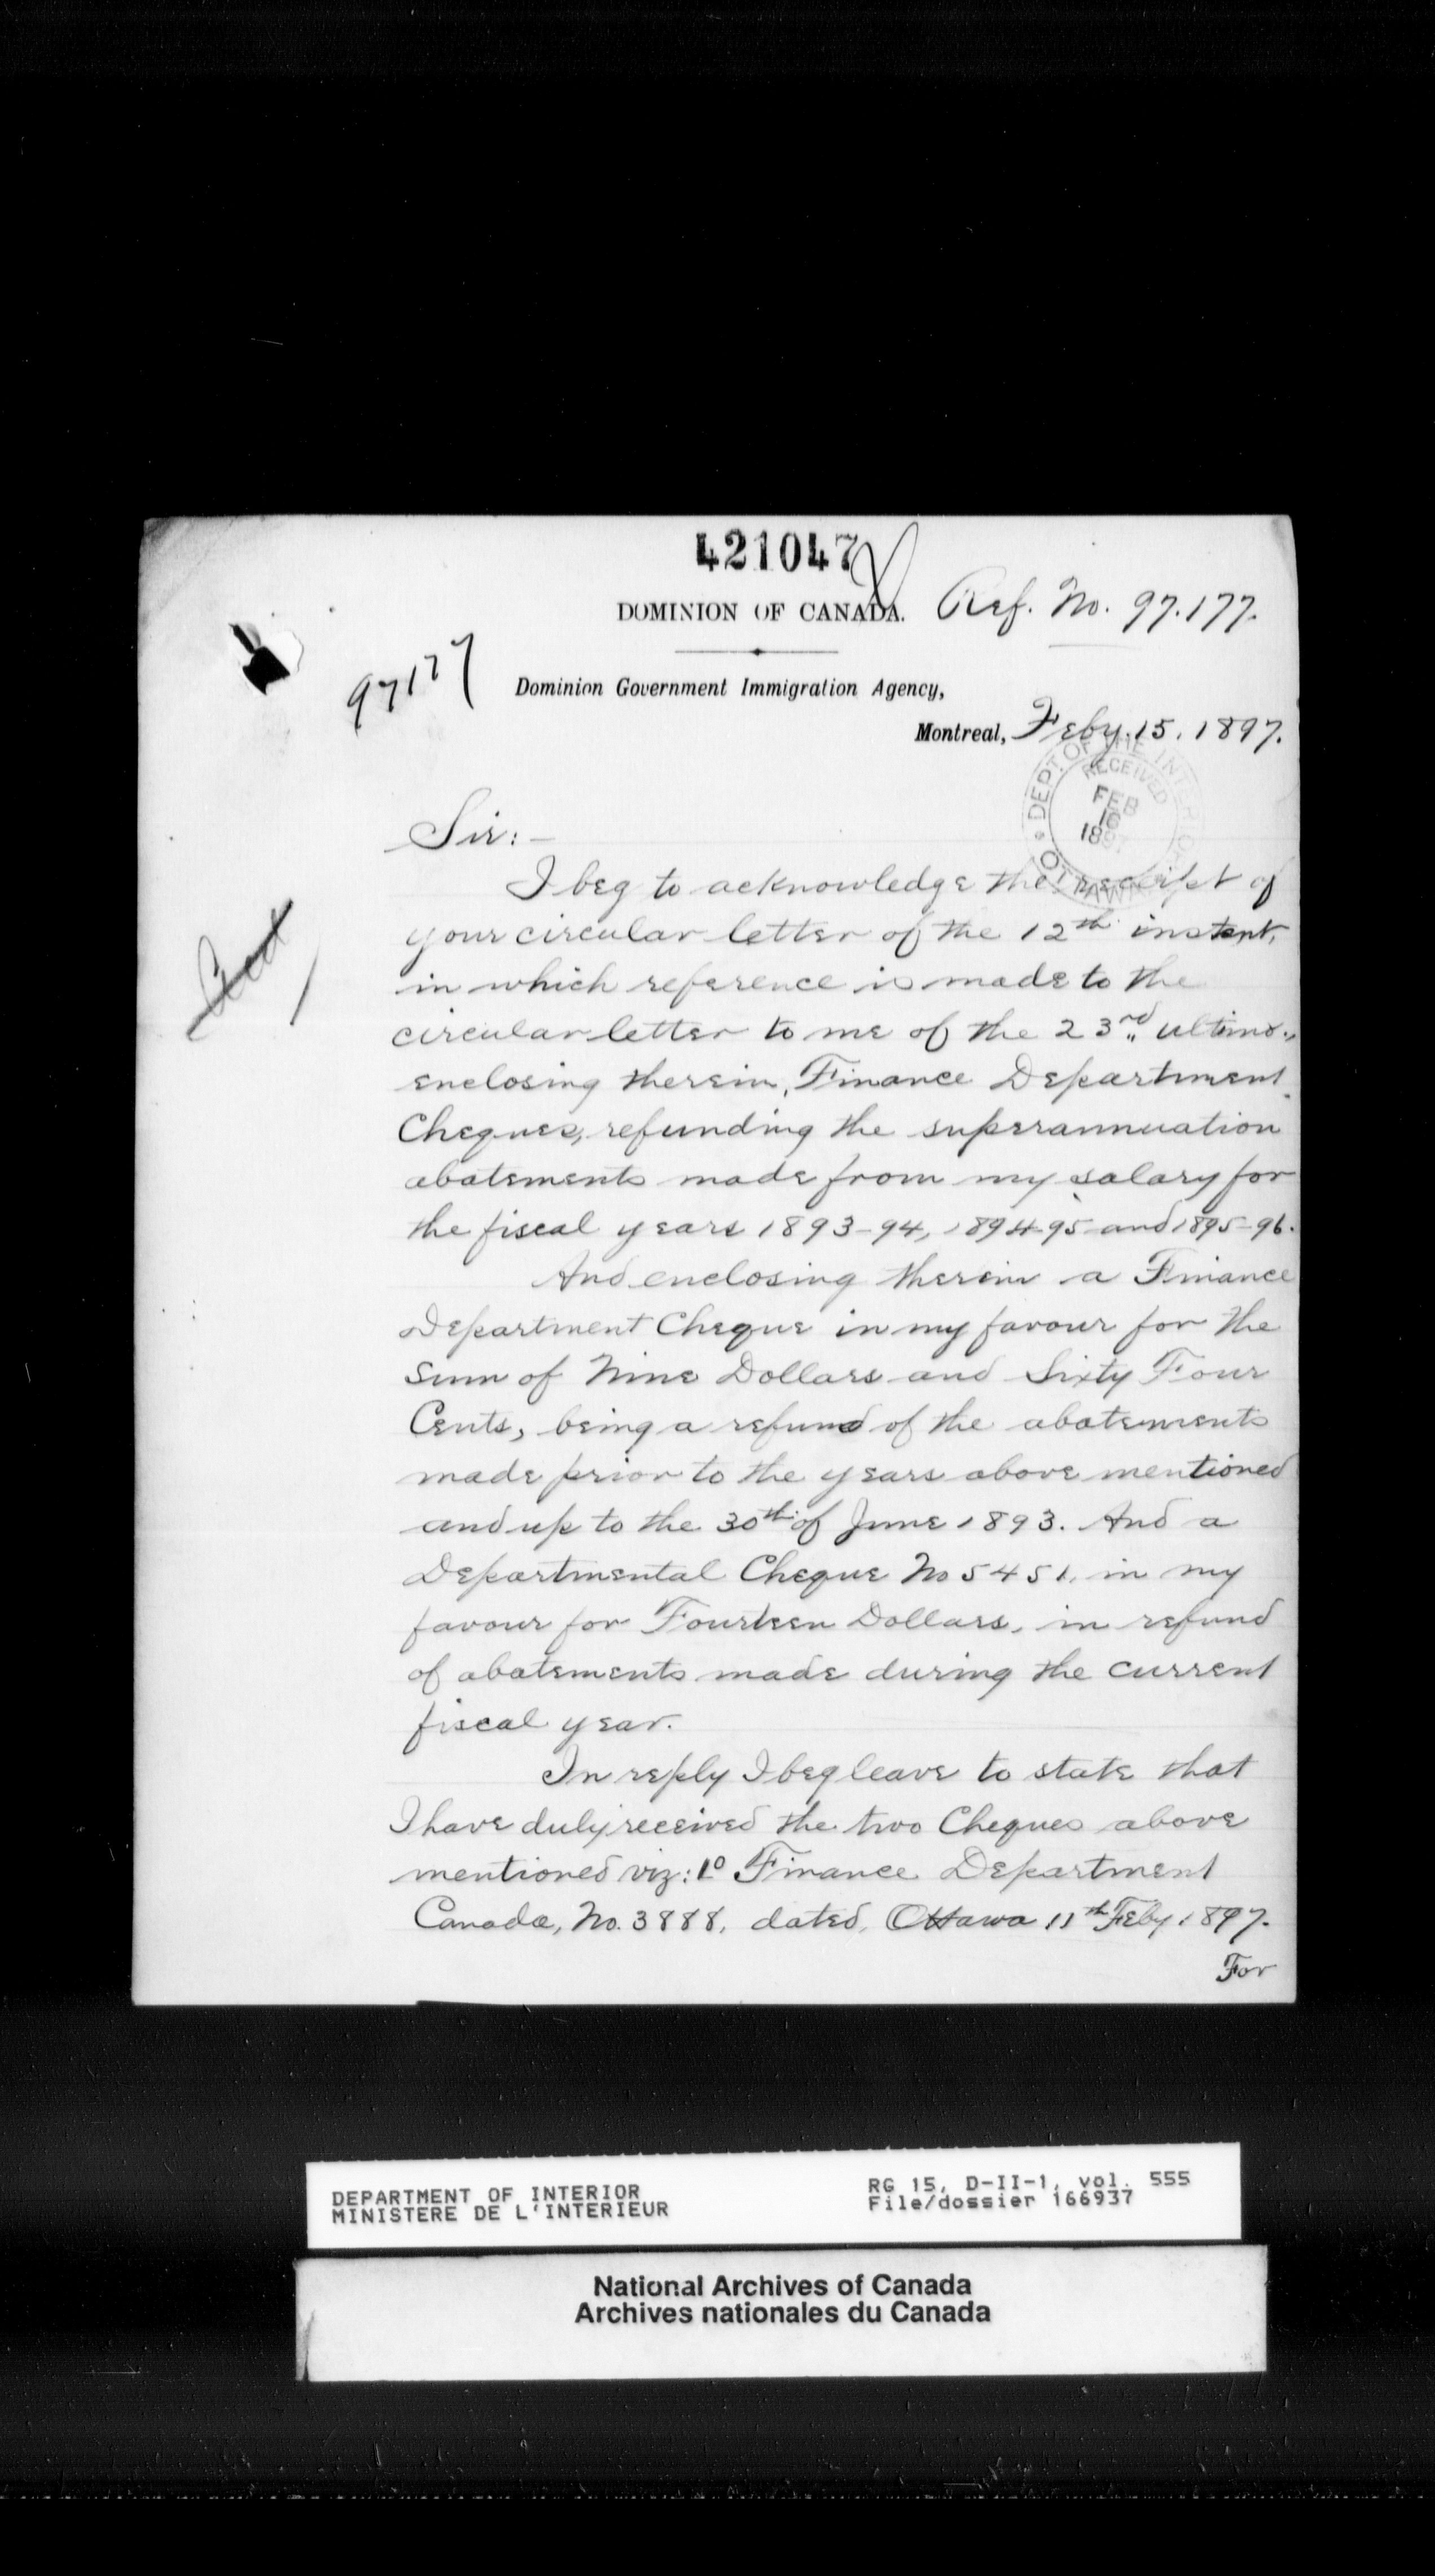 421047
DOMINION OF CANADA. Ref. No. 97.177.
97177
Dominion Government Immigration Agency,
Montreal, Feby. 15. 1897.
DEPT. OF THE INTERIOR
RECEIVED
FEB
16
1897
OTTAWA
Sir:-
I beg to acknowledge the receipt of
your circular letter of the 12th instant,
in which reference is made to the
circular letter to me of the 23rd ultimo.,
enclosing therein, Finance Department
Cheques, refunding the superannuation
abatements made from my salary for
the fiscal years 1893-94, 1894-95 and 1895-96.
And enclosing therein a Finance
Department Cheque in my favour for the
Sum of Nine Dollars and Sixty Four
Cents, being a refund of the abatements
made prior to the years above mentioned
and up to the 30th of June 1893. And a
Departmental Cheque No 5451, in my
favour for Fourteen Dollars, in refund
of abatements made during the current
fiscal year.
In reply I beg leave to state that
I have duly received the two Cheques above
mentioned viz: 1o Finance Department
Canada, No. 3888, dated, Ottawa 11th Feby 1897.
For
DEPARTMENT OF INTERIOR
MINISTERE DE L'INTERIEUR
RG 15, D-II-1, vol. 555
File/dossier 166937
National Archives of Canada
Archives nationales du Canada